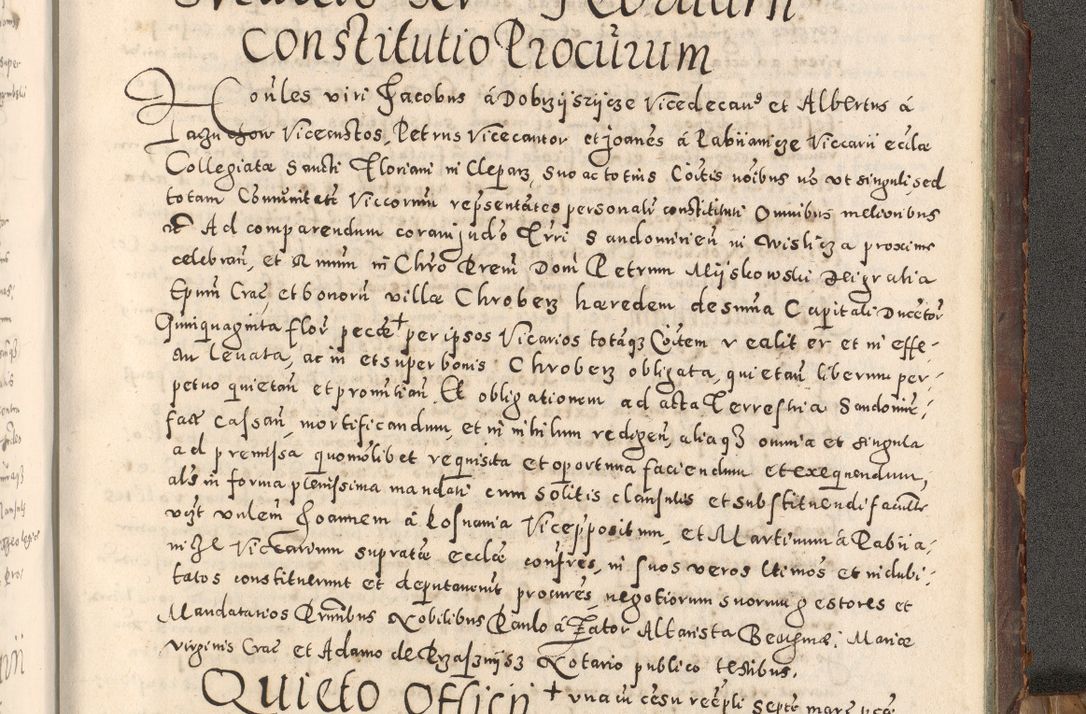 Constitutio Procurum
Honles viri Jacobus á Dobrzijszijcze Vicedecan9 et Albertus á
Vicecustos, Petrus Vicecantor et Joanes á Pabiianicze Viccarii eccłae
Collegiatæ Sancti Floriani in Clepardz, suo ac totius Coitis noibus uo ut singuli sed
totam Comunitatē Viccorum repsentātes personalr constituti Omnibus melioribus
Ad comparendum coram judo Trri Sandomirien in Wislicza proxime
celebran, et Rmum in Chro Prem Dom Petrum Mijskowski Dei gratia
Epum Crac et bonorū villæ Chroberz hæredem de suma Capitali Ducetor
Quinquaginta flor pecæ + per ipsos Vicarios totāq3 Coitem realiter et in effe-
ctu levata, ac in et super bonis Chroberz obligata, quietan liberum per-
petuo quietan et promittan. Et obligationem ad acta Terrestria Sandomir-
fact cassan, mortificandum, et in nihilum redigen, aliaq3 omnia et singula
ad premissa quomolibet requisita et oportuna faciendum et exequendum,
als in forma plenissima mandati cum solitis clausulis et substituendi facultte
Joannem á Kosnania Vicepositum, et Martinum á Pabiia-
nicze Viccarium supratæ ecclæ confres, in suos veros ltimos et indubi-
tatos constituerunt et deputaverut procures, negotiorum suorum gestores et
Mandatarios Pnntibus Nobilibus Paulo á Zator Altarista Beatissmæ Mariæ
virginis Crac et Adamo de Notario publico testibus.
Quieto Officij + una cū cesu recepti septē marc pcæ